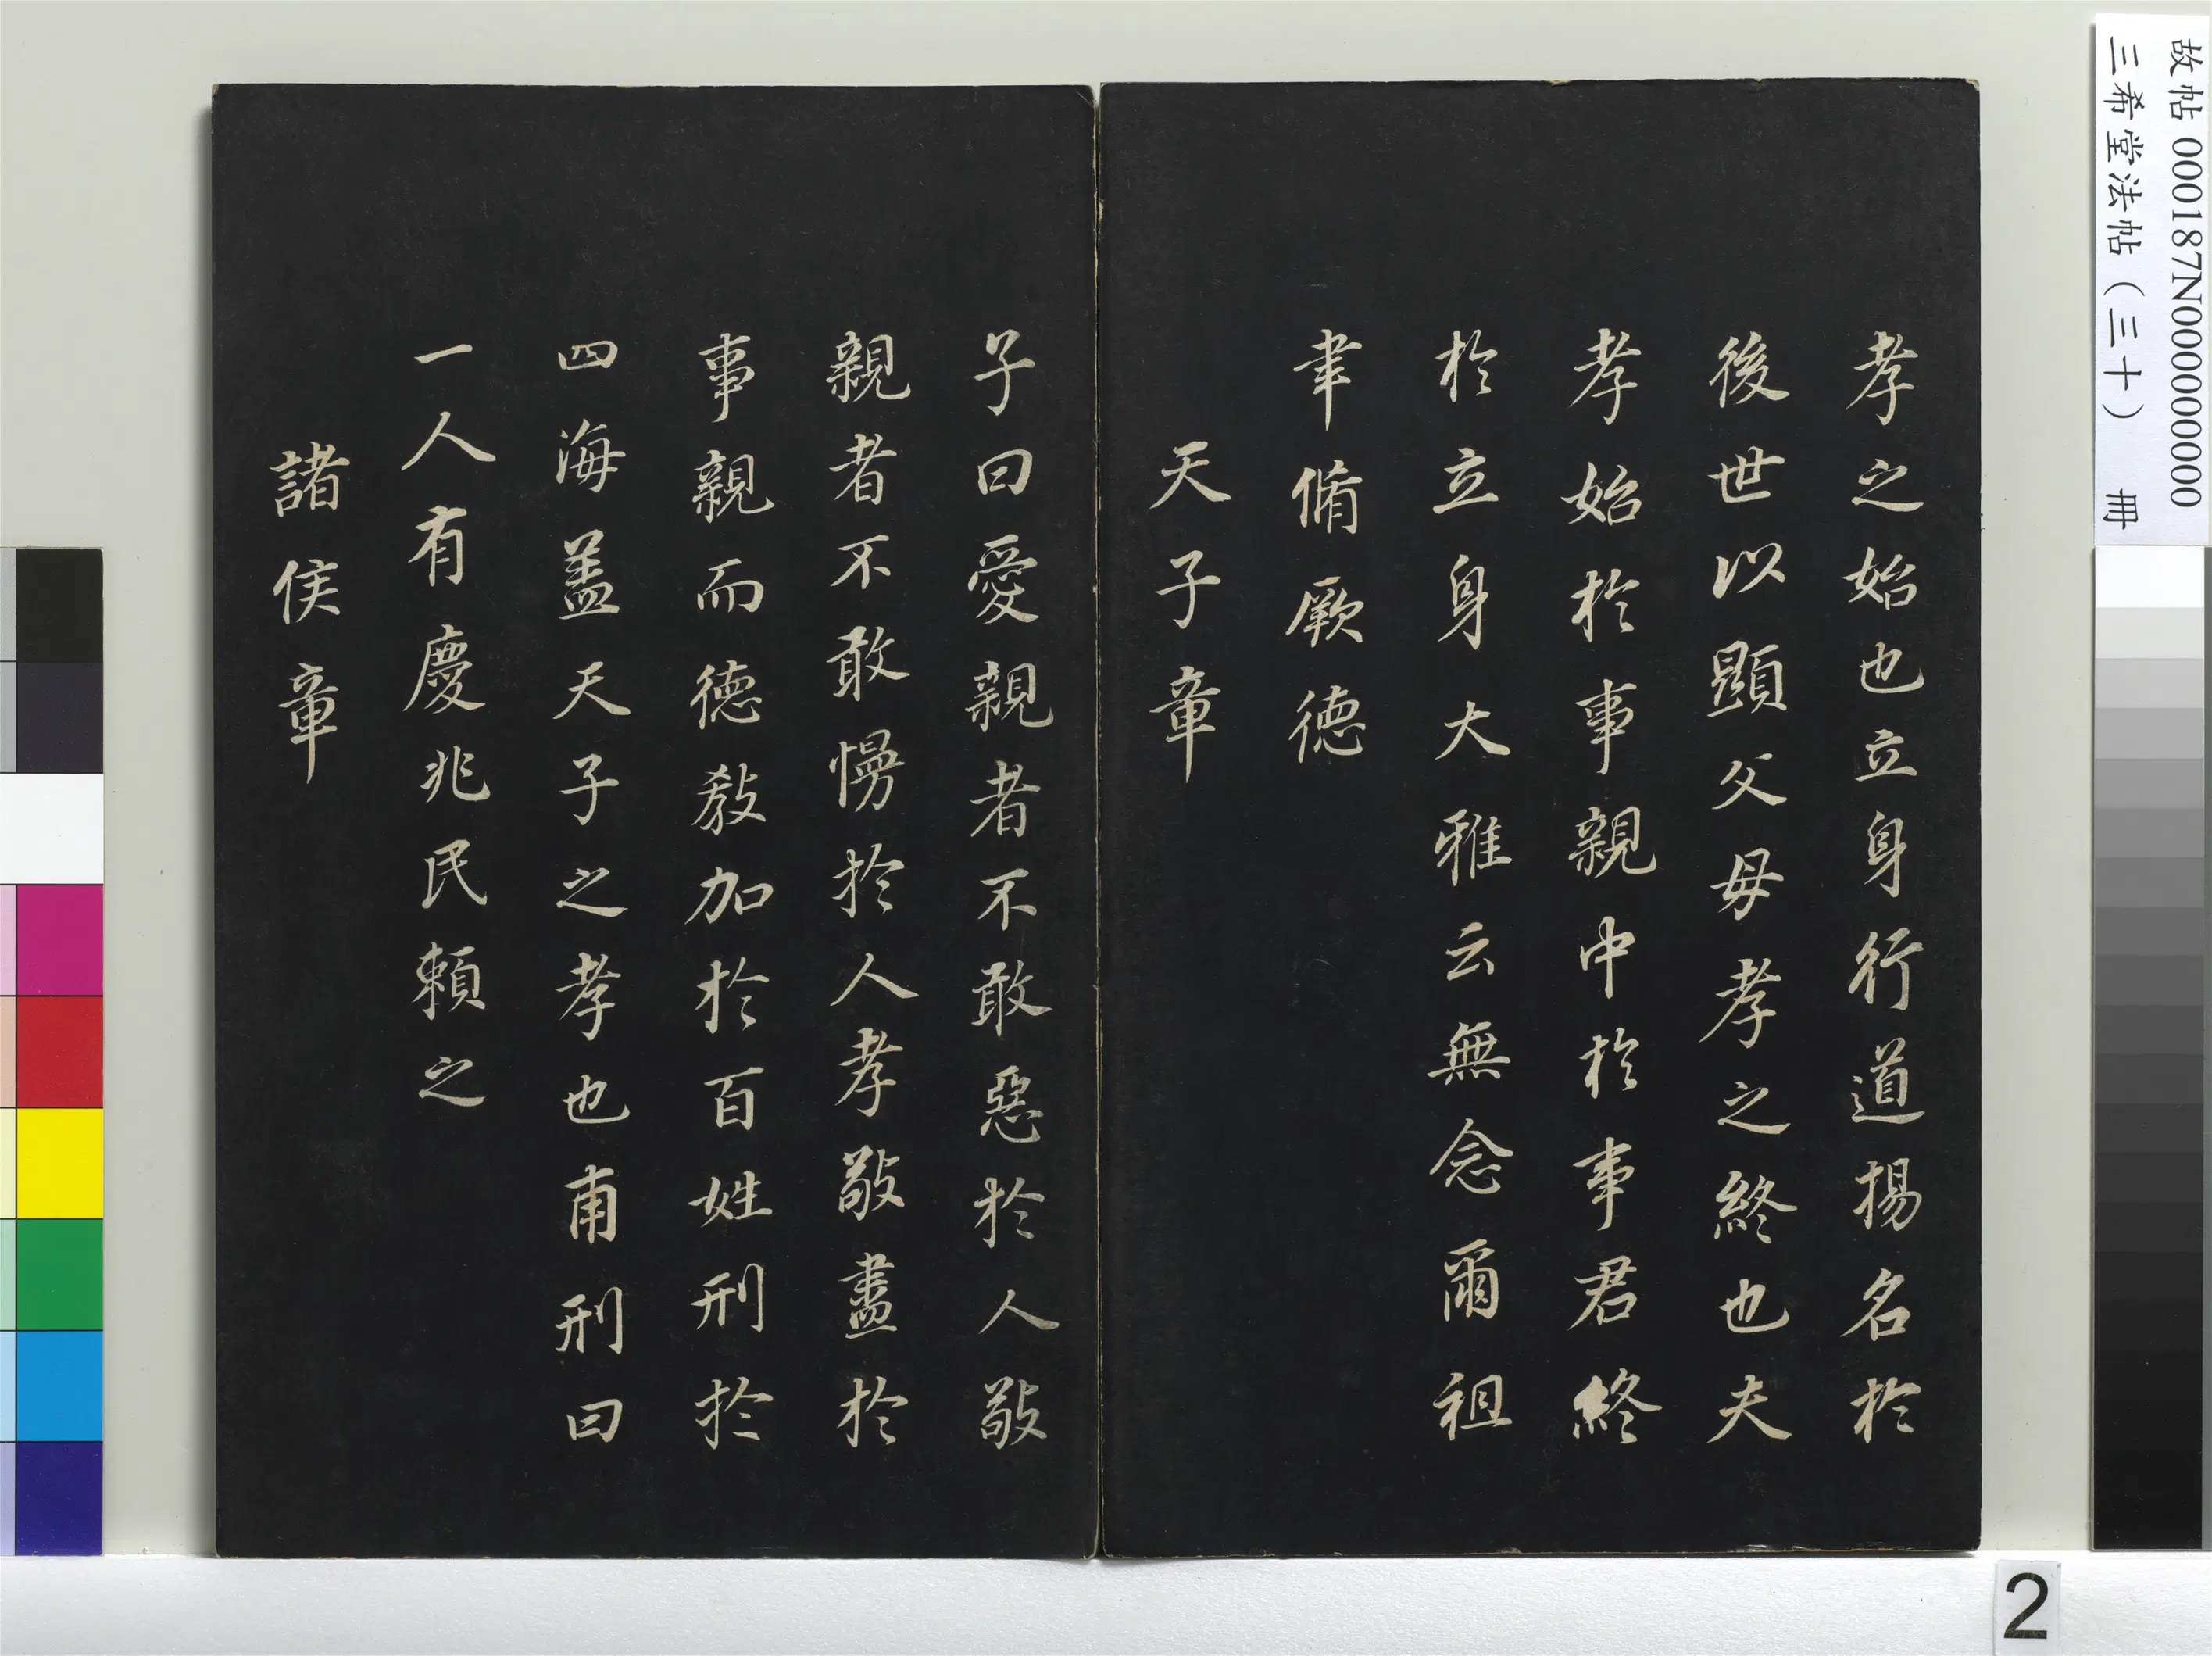 故帖 000187N000000000
三希堂法帖（三十） 冊
孝之始也立身行道揚名於
後世以顯父母孝之終也夫
孝始於事親中於事君終
於立身大雅云無念爾祖
聿脩厥德
天子章
子曰愛親者不敢惡於人敬
親者不敢慢於人孝敬盡於
事親而德教加於百姓刑於
四海盖天子之孝也甫刑曰
一人有慶兆民賴之
諸侯章
2